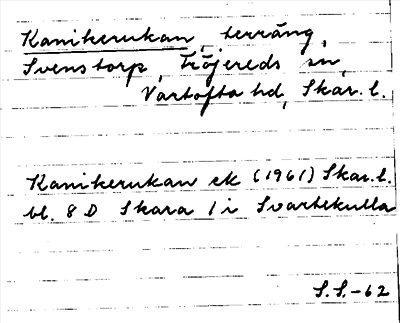 Kanikerukan, terräng,
Svenstorp, Fröjereds sn,
Vartofta hd, Skar. l.
Kanikerukan ek (1961) Skar. l.
bl. 8 D Skara 1 i Svartekulla
S.S.-62